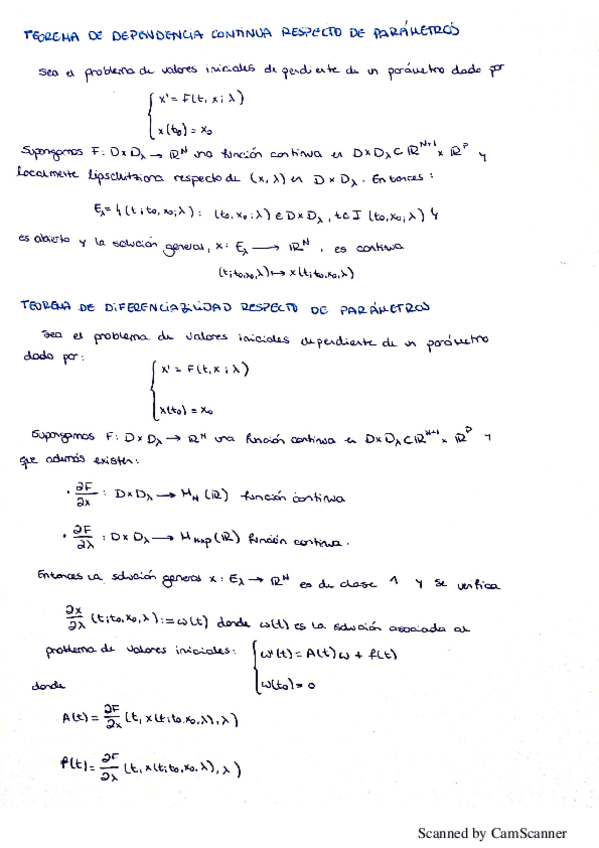 TEOREMA DE DEPENDENCIA CONTINUA RESPECTO DE PARÁMETROS
Sea el problema de valores iniciales dependiente de un parámetro dado por
{ x' = F(t, x; λ)
x(t₀) = x₀
Supongamos F: D×D_λ → ℝ^N una función continua en D×D_λ ⊂ ℝ^{N+1} × ℝ^P y
localmente lipschitziana respecto de (x, λ) en D×D_λ. Entonces:
E_λ = {(t; t₀, x₀; λ): (t₀, x₀; λ) ∈ D×D_λ, t ∈ I(t₀, x₀; λ)}
es abierto y la solución general, x: E_λ → ℝ^N, es continua
(t; t₀, x₀, λ) ↦ x(t; t₀, x₀, λ)
TEOREMA DE DIFERENCIABILIDAD RESPECTO DE PARÁMETROS
Sea el problema de valores iniciales dependiente de un parámetro
dado por:
{ x' = F(t, x; λ)
x(t₀) = x₀
Supongamos F: D×D_λ → ℝ^N una función continua en D×D_λ ⊂ ℝ^{N+1} × ℝ^P y
que además existen:
· ∂F/∂x : D×D_λ → M_N(ℝ) función continua
· ∂F/∂λ : D×D_λ → M_{N×p}(ℝ) función continua.
Entonces la solución general x: E_λ → ℝ^N es de clase 1 y se verifica
∂x/∂λ (t; t₀, x₀, λ) := ω(t) donde ω(t) es la solución asociada al
problema de valores iniciales: { ω'(t) = A(t)ω + f(t)
ω(t₀) = 0
donde
A(t) = ∂F/∂x (t, x(t; t₀, x₀, λ), λ)
f(t) = ∂F/∂λ (t, x(t; t₀, x₀, λ), λ)
Scanned by CamScanner